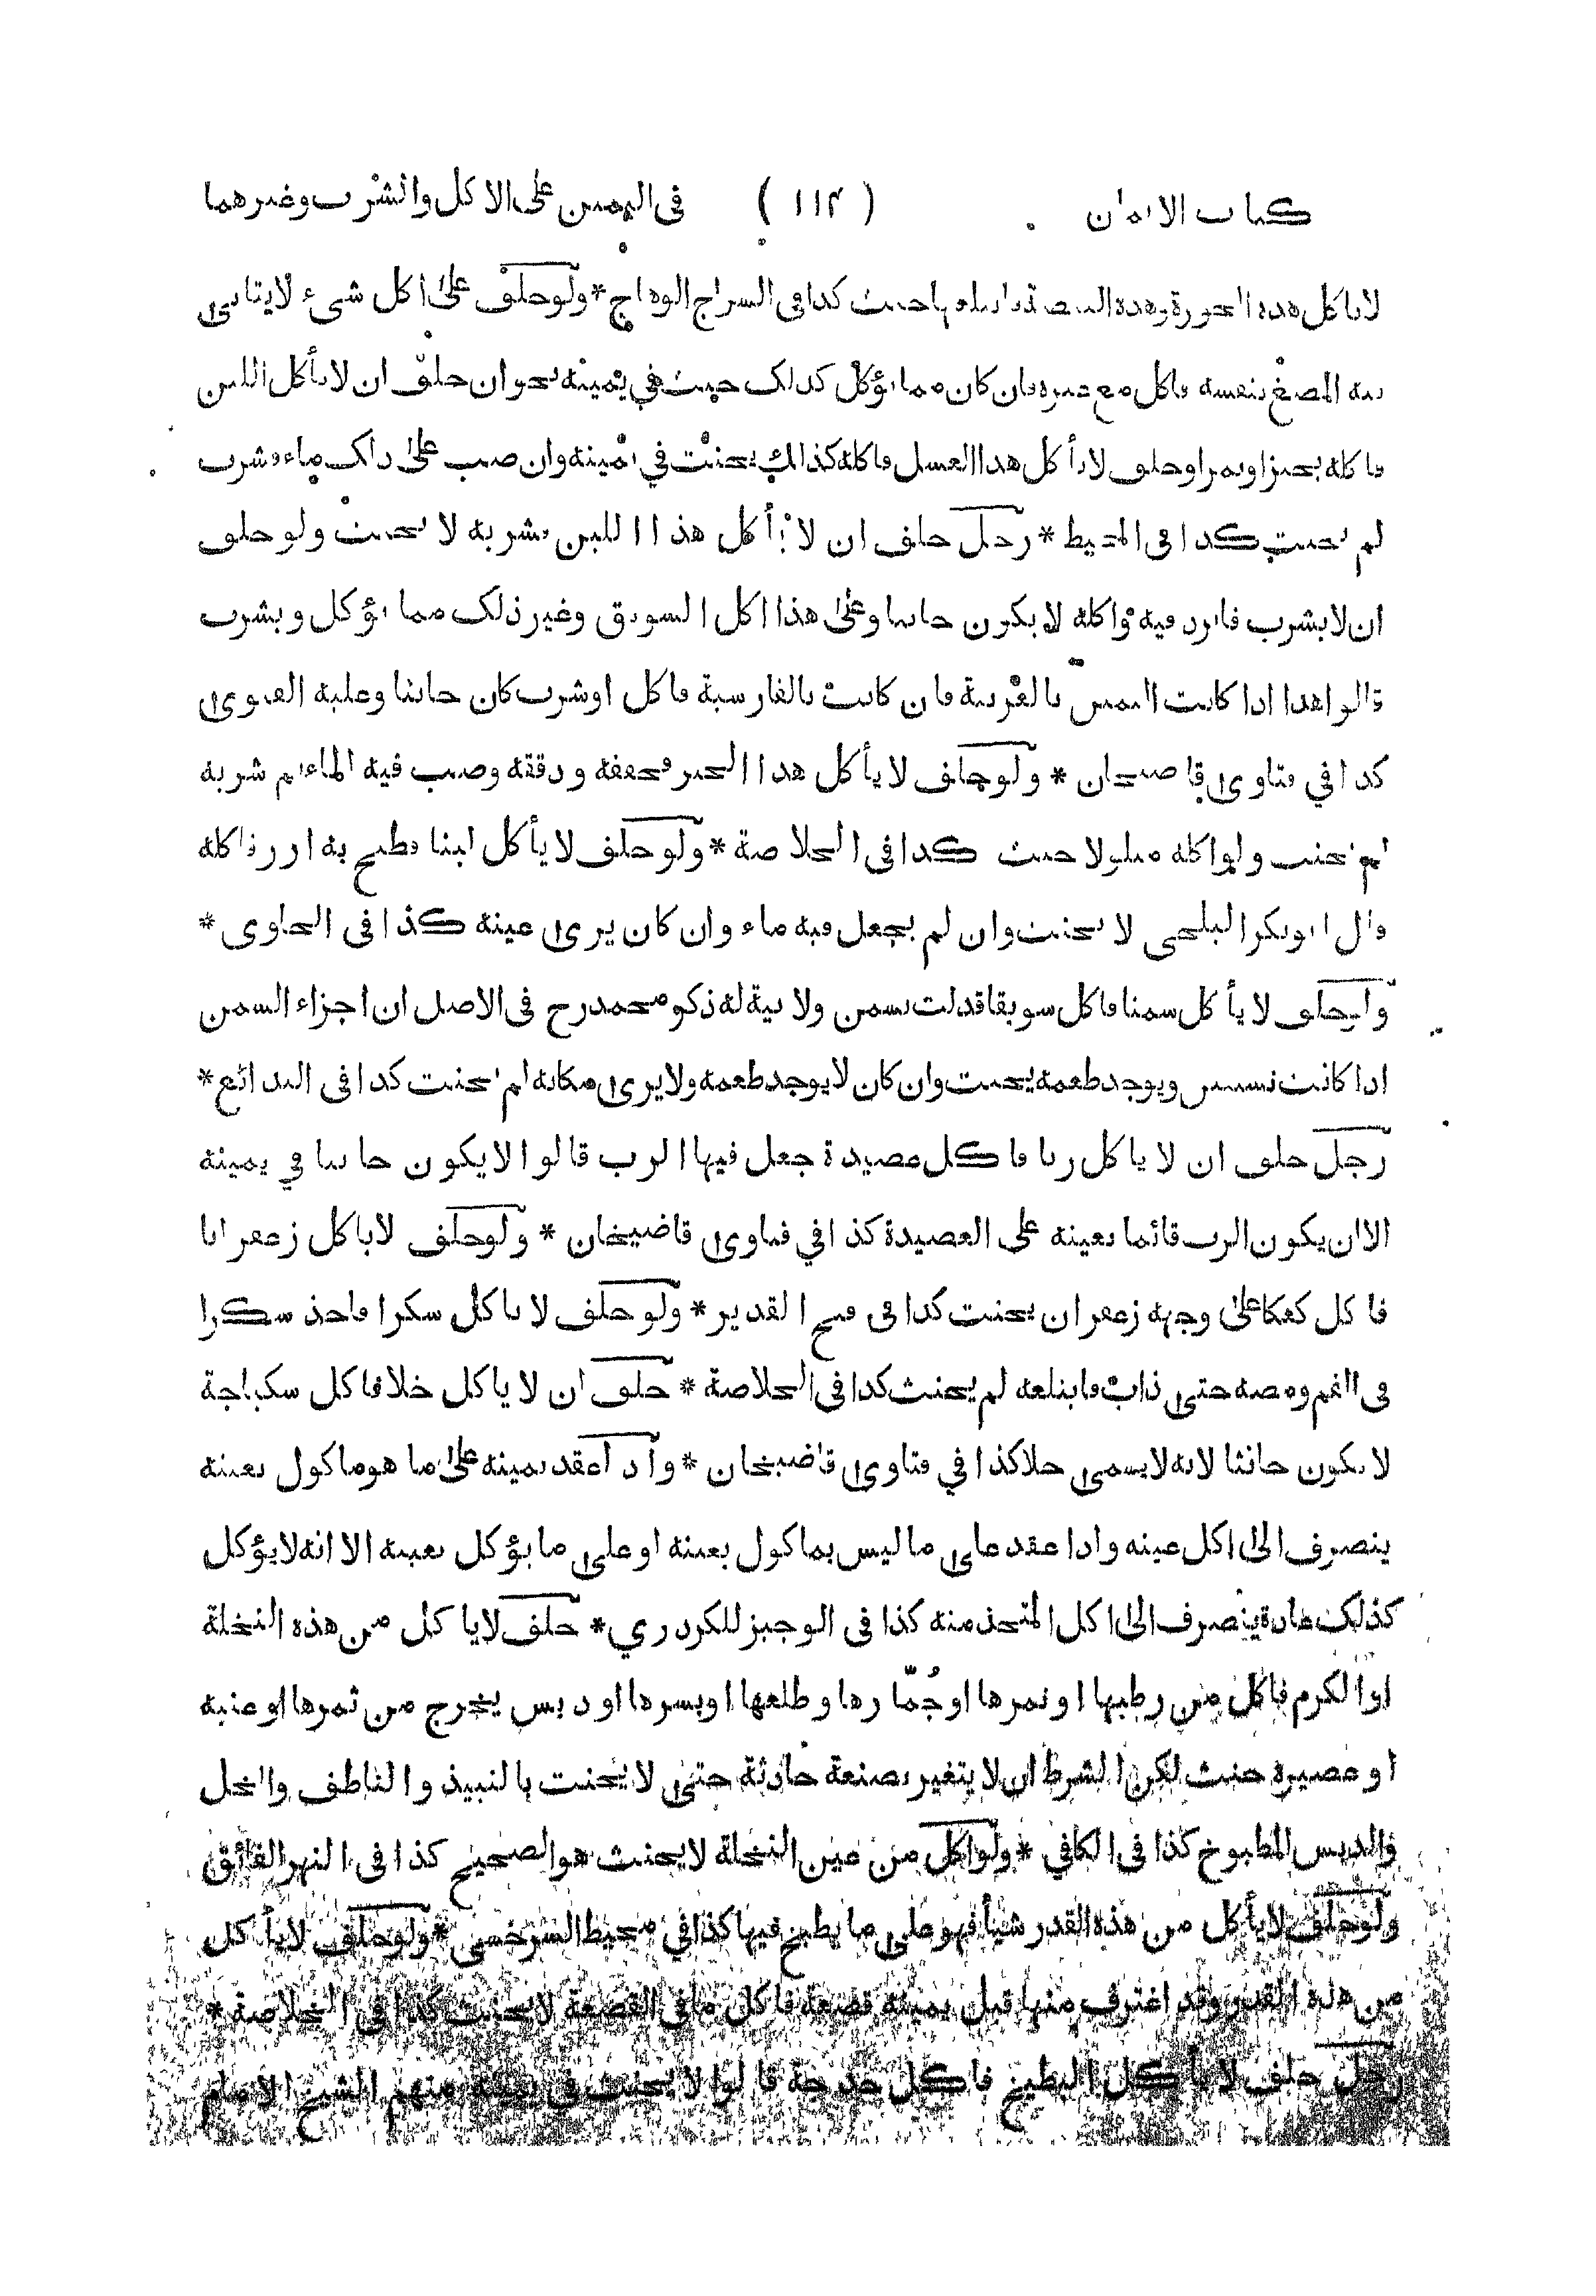 كتاب الايمان ( ١١٢ ) فى اليمين على الاكل والشرب وغيرهما
لا ياكل هذه الجوزة وهذه البيضة فابتلعها حنث كذا فى السراج الوهاج * ولو حلف على اكل شىء لا يتاتى
فيه المضغ بنفسه فاكل مع غيره فان كان مما يؤكل كذلك حنث في يمينه نحو ان حلف ان لا يأكل اللبن
فاكله بخبز او تمر او حلف لا يأكل هذا العسل فاكله كذالك يحنث في يمينه وان صب على ذلك ماء فشرب
لم يحنث كذا فى المحيط * رجل حلف ان لا يأكل هذا اللبن فشربه لا يحنث ولو حلف
ان لا يشرب فاثرد فيه فاكله لا يكون حانثا وعلى هذا اكل السويق وغير ذلك مما يؤكل ويشرب
قالوا هذا اذا كانت اليمين بالعربية فان كانت بالفارسية فاكل او شرب كان حانثا وعليه الفتوى
كذا في فتاوى قاضيخان * ولو حلف لا يأكل هذا الخبز فجففه ودققه وصب فيه الماء ثم شربه
لم يحنث ولو اكله مبلولا حنث كذا فى الخلاصة * ولو حلف لا يأكل لبنا فطبخ به ارز فاكله
قال ابوبكر البلخى لا يحنث وان لم يجعل فيه ماء وان كان يرى عينه كذا فى الحاوى *
ولو حلف لا يأكل سمنا فاكل سويقا قد لت بسمن ولا نية له ذكر محمد رح فى الاصل ان اجزاء السمن
اذا كانت تستبين ويوجد طعمه يحنث وان كان لا يوجد طعمه ولا يرى مكانه لم يحنث كذا فى البدائع *
رجل حلف ان لا ياكل ربا فاكل عصيدة جعل فيها الرب قالوا لا يكون حانثا في يمينه
الا ان يكون الرب قائما بعينه على العصيدة كذا في فتاوى قاضيخان * ولو حلف لا ياكل زعفرانا
فاكل كعكا على وجهه زعفران يحنث كذا فى فتح القدير * ولو حلف لا ياكل سكرا فاخذ سكرا
فى الفم ومصه حتى ذاب فابتلعه لم يحنث كذا فى الخلاصة * حلف ان لا ياكل خلا فاكل سكباجة
لا يكون حانثا لانه لا يسمى خلا كذا في فتاوى قاضيخان * واذا عقد يمينه على ما هو ماكول بعينه
ينصرف الى اكل عينه واذا عقد على ما ليس بماكول بعينه او على ما يؤكل بعينه الا انه لا يؤكل
كذلك عادة ينصرف الى اكل المتخذ منه كذا فى الوجيز للكردري * حلف لا ياكل من هذه النخلة
او الكرم فاكل من رطبها او تمرها او جُمّارها وطلعها او بسرها او دبس يخرج من ثمرها او عنبه
او عصيره حنث لكن الشرط ان لا يتغير بصنعة حادثة حتى لا يحنث بالنبيذ والناطف والخل
والدبس المطبوخ كذا فى الكافي * ولو اكل من عين النخلة لا يحنث هو الصحيح كذا فى النهر الفائق
ولو حلف لا يأكل من هذه القدر شيأ فهو على ما يطبخ فيها كذا في محيط السرخسى * ولو حلف لا يأكل
من هذه القدر وقد اغترف منها قبل يمينه قصعة فاكل ما فى القصعة لا يحنث كذا فى الخلاصة *
رجل حلف لا يأكل البطيخ فاكل حدجة قالوا لا يحنث فى يمينه منهم الشيخ الامام